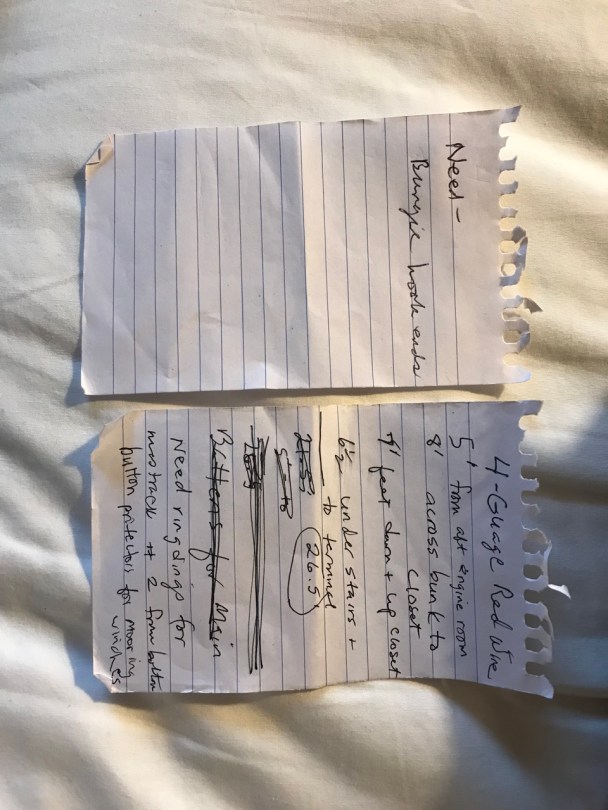 Need -
Bungie hook ends
4-Guage Red Wire
5' from aft engine room
8' across bunk to
closet
7' feet down + up closet
6½ under stairs +
to terminal
26.5
Battens for Main
Need ring dings for
mastrack # 2 from bottom
button protectors for mooring
winches